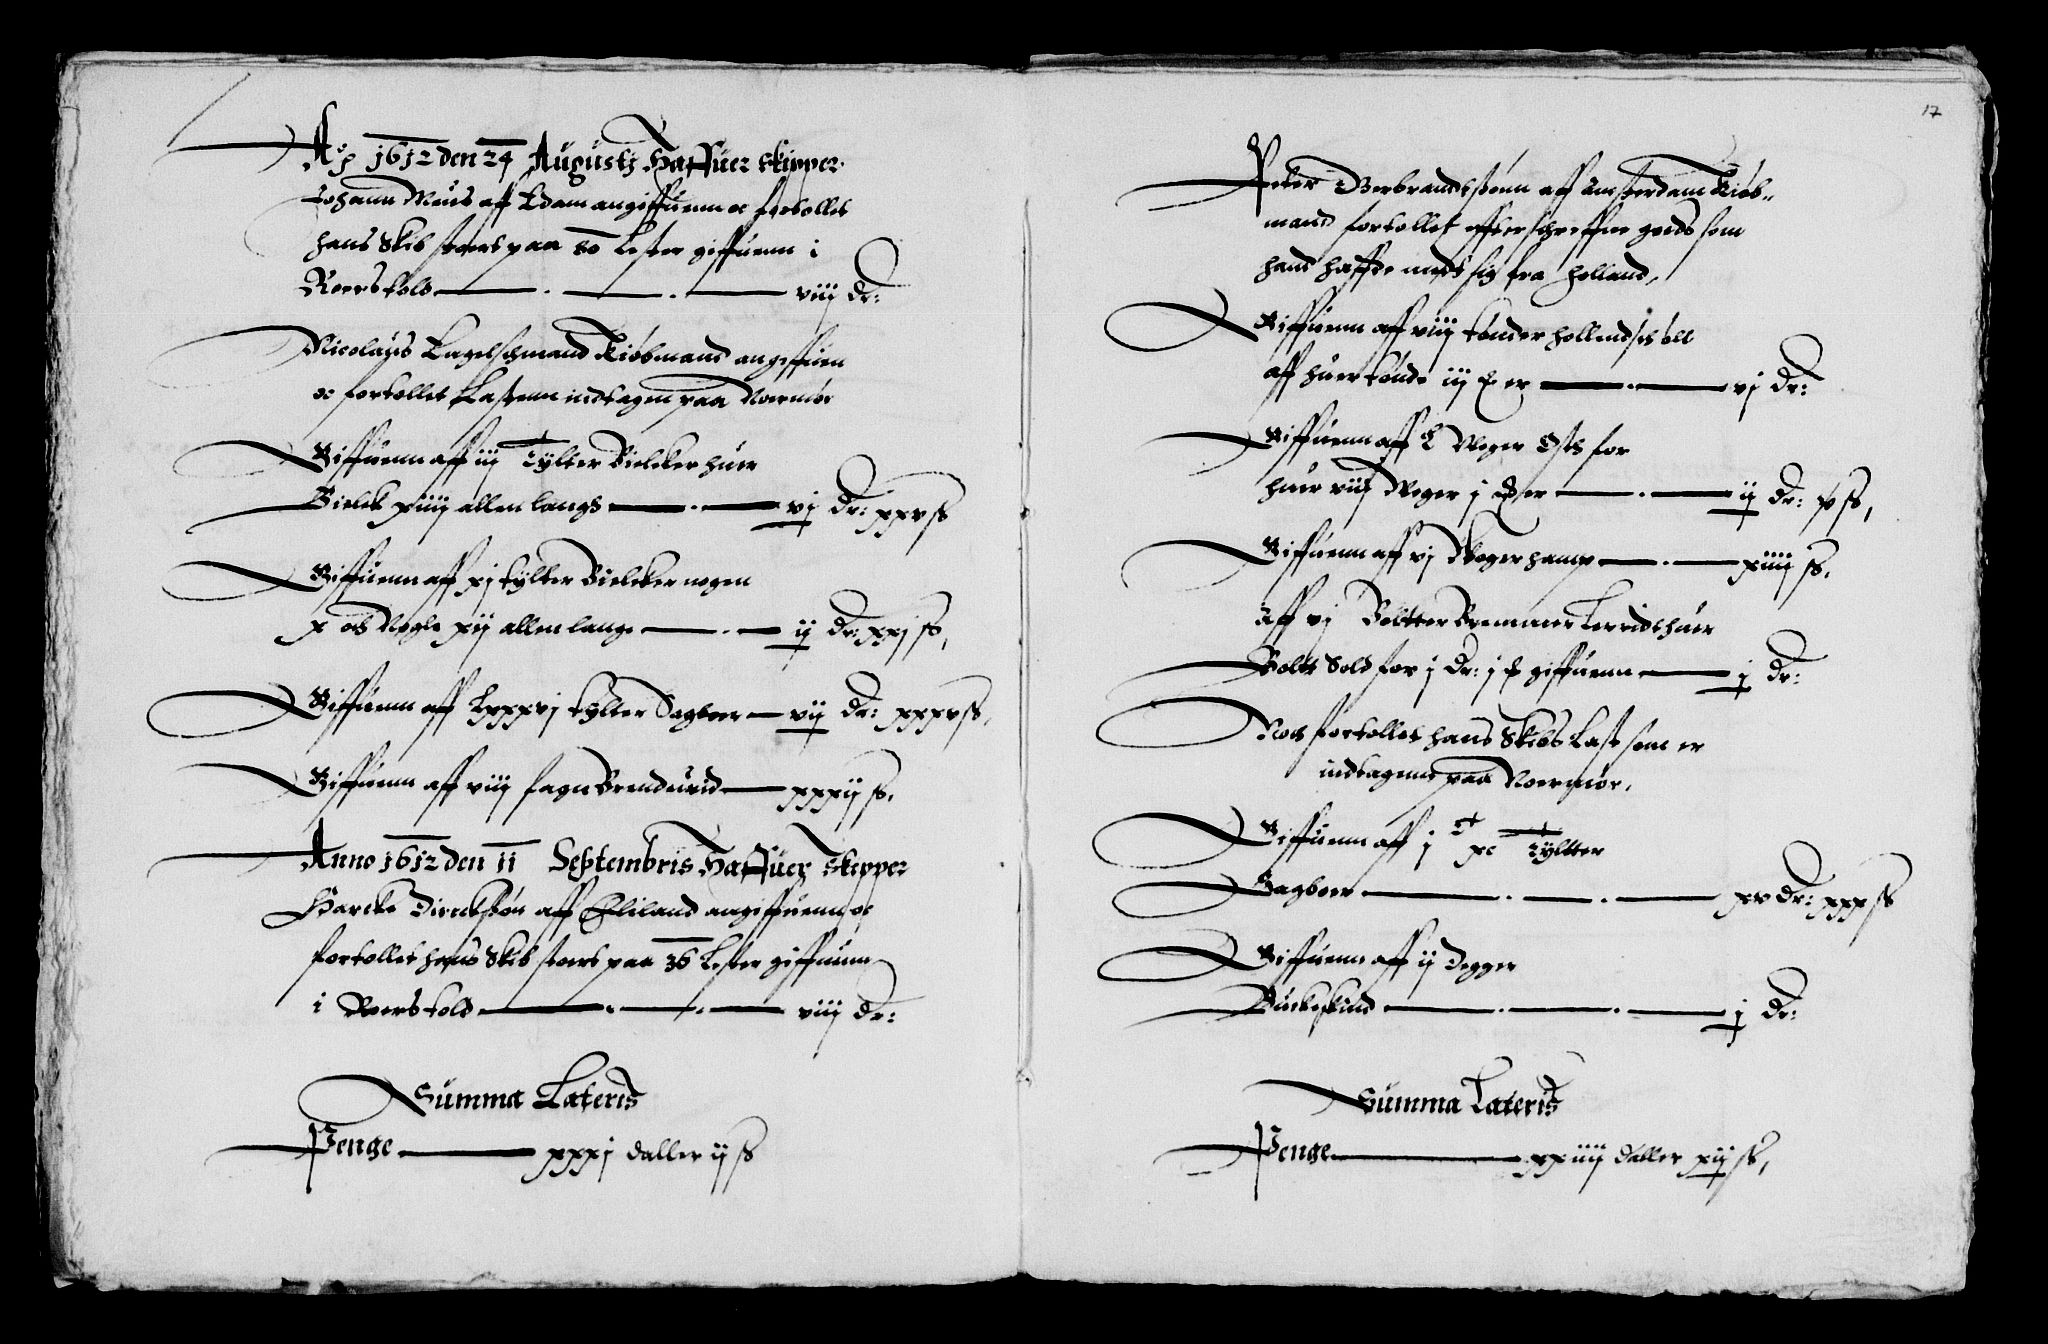 Ao 1612 den 24 Augustj Haffuer Skipper
Johann Meus aff Edam angiffuenn oc fortollet
hans Skib stoert paa 80 Lester giffuenn i
Roerstold viij Dr:
Nicolaus Lagelschmand Kiøbmand angiffuen
oc fortollet Lastenn indtagen paa Noermør
Giffuenn aff iij Tylter Bielcker huer
Bielck xiiij allen langh vj Dr: xxv ß
Giffuenn aff xj tylter Bielcker nogen
x och Nogle xij allen lange ij Dr: xxj ß,
Giffuenn aff Lxxxvj tylter Sagboer vij Dr: xxxv ß,
Giffuenn aff viij fagn Brendeuid xxxij ß,
Anno 1612 den 11 Septembris Haffuer Skipper
Harcke Dirckßøn aff Flieland angiffuenn oc
fortollet hans Skib stoert paa 36 Lester giffuenn
i Roerstold viij Dr:
Summa Lateris
Penge xxxj daller ij ß
17
Peter Gerbrandtßønn aff Amsterdam Kiøb-
mand fortollet effterschreffne gods som
hand haffde medt sig fra Holland,
Giffuenn aff viij tønder hollendsch øll
aff huer tønde iij er vj Dr:
Giffuenn aff L Woger Osth for
huer viij Woger j er ij Dr: x ß,
Giffuenn aff vj Woger hamp xiiij ß,
Aff vj Boltter Bremmer Lerridt huer
Bolt Sold for j Dr: j giffuenn j Dr:
Noch fortollet hans Skibs Last som er
indtagenn paa Noermør,
Giffuenn aff j c xc Tyltter
Sagboer xv Dr: xxx ß
Giffuenn aff ij Degger
Buckeskind j Dr:
Summa Lateris
Penge xxiiij daller xij ß,